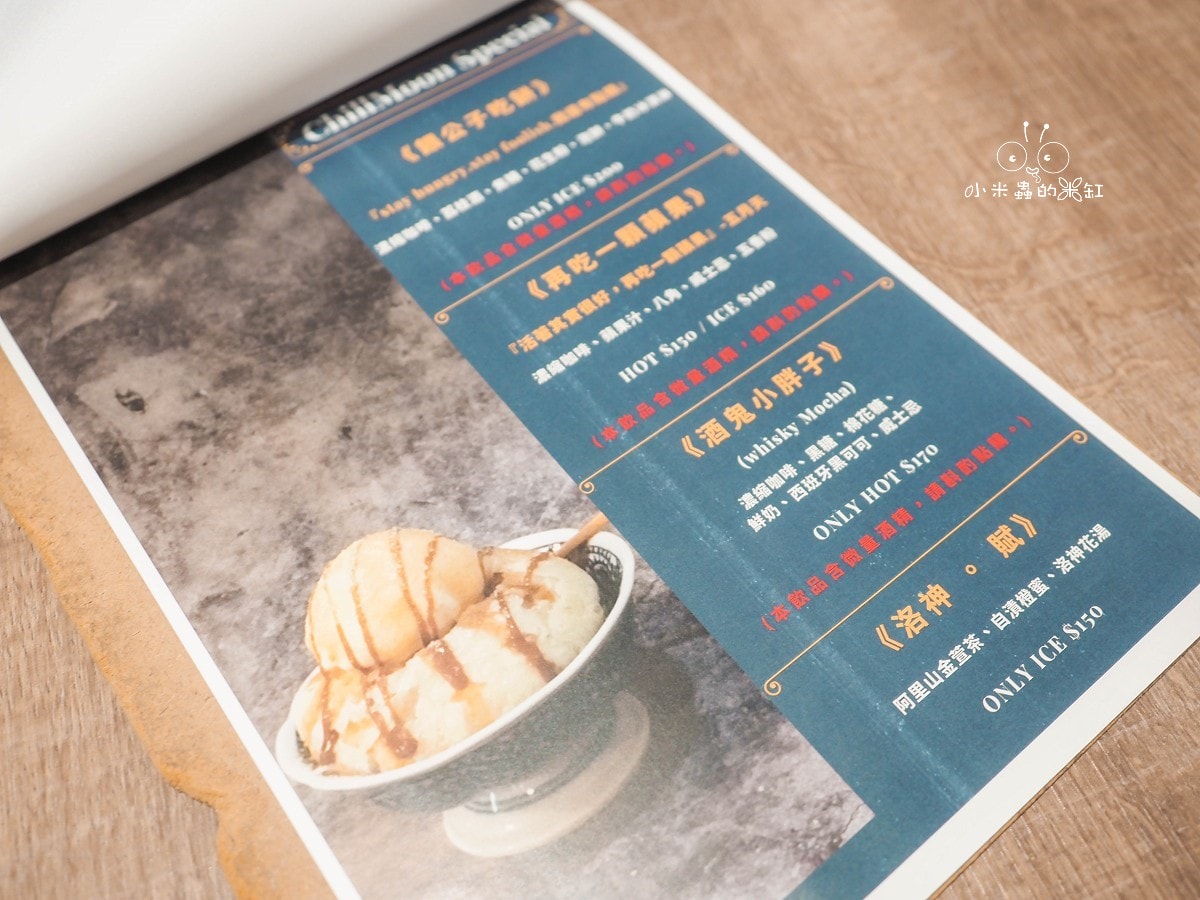 ChiliMoon Special
公子吃餅》
『stay hungry,stay foolish
ONLY ICE $200
(本飲品含微量酒精，請斟酌點購。)
《再吃一顆蘋果》
『活著其實很好，再吃一顆蘋果』-五月天
濃縮咖啡、蘋果汁、八角、威士忌、五香粉
HOT $150 / ICE $160
(本飲品含微量酒精，請斟酌點購。)
《酒鬼小胖子》
(whisky Mocha)
濃縮咖啡、黑糖、棉花糖、
鮮奶、西班牙黑可可、威士忌
ONLY HOT $170
(本飲品含微量酒精，請斟酌點購。)
《洛神。賦》
阿里山金萱茶、自漬橙蜜、洛神花湯
ONLY ICE $150
小米蟲的米缸